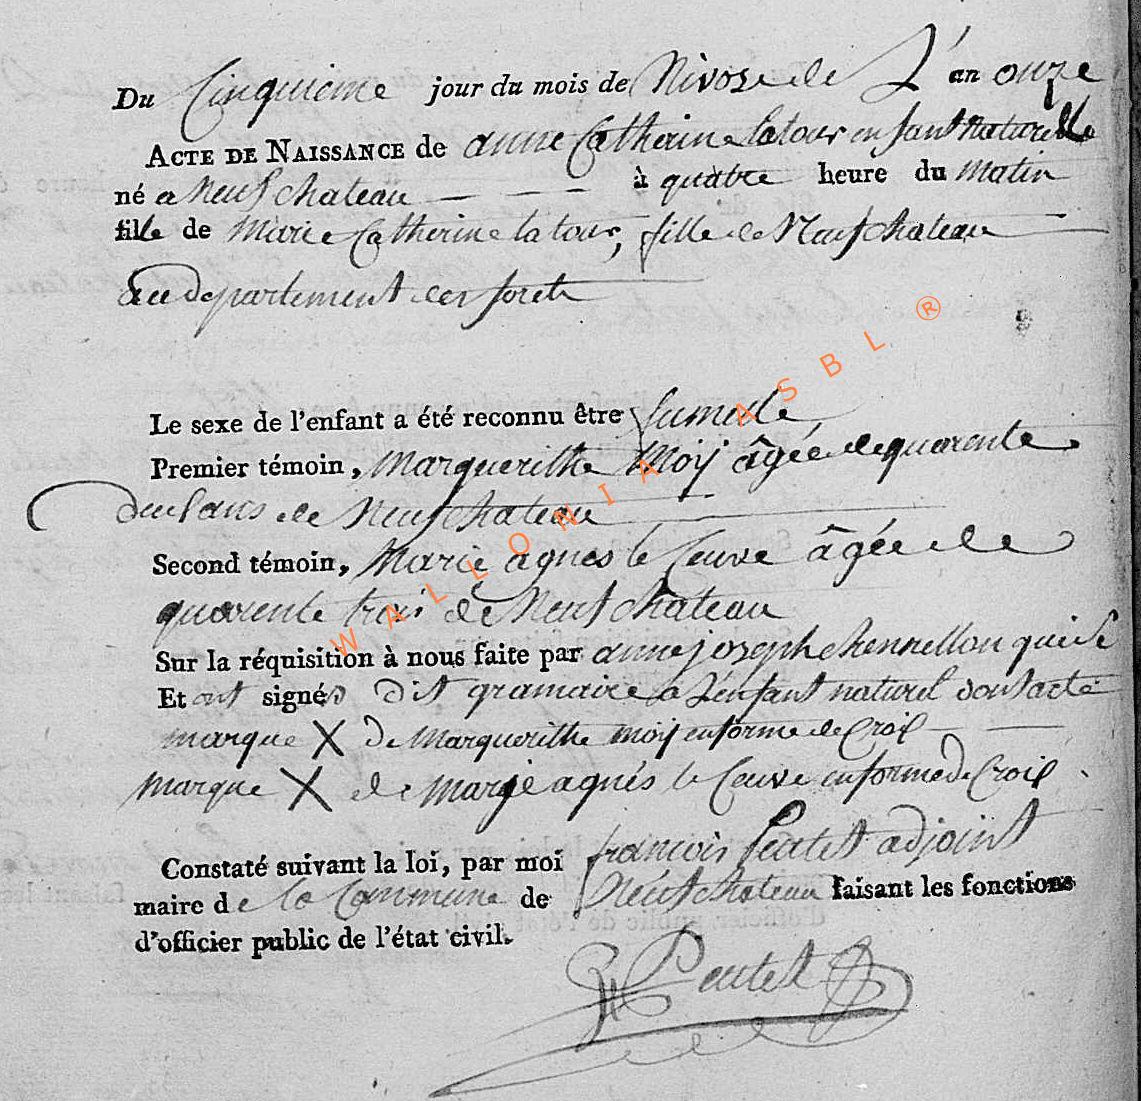 Du Cinquieme jour du mois de Nivose de L'an onze
ACTE DE NAISSANCE de anne Catherine latour enfant naturelle
né a Neufchateau — — — — à quatre heure du matin
fille de Marie Catherine latour, fille de Neufchateau
au departement des forets
Le sexe de l'enfant a été reconnu être femelle
Premier témoin, Marguerithe Moij âgée de quarente
deux ans de Neufchateau
Second témoin, Marie agnes le Cuvre âgée de
quarente trois de Neufchateau
Sur la réquisition à nous faite par anne joseph qui
Et ont signés dit gramaire a l'enfant naturel dont acte
marque X de Marguerithe moij en forme de Croix
Marque X de Marie agnés le Cuvre en forme de Croix
Constaté suivant la loi, par moi francois adjoint
maire de la Commune de Neufchateau faisant les fonctions
d'officier public de l'état civil.
WALLONIA ASBL ®